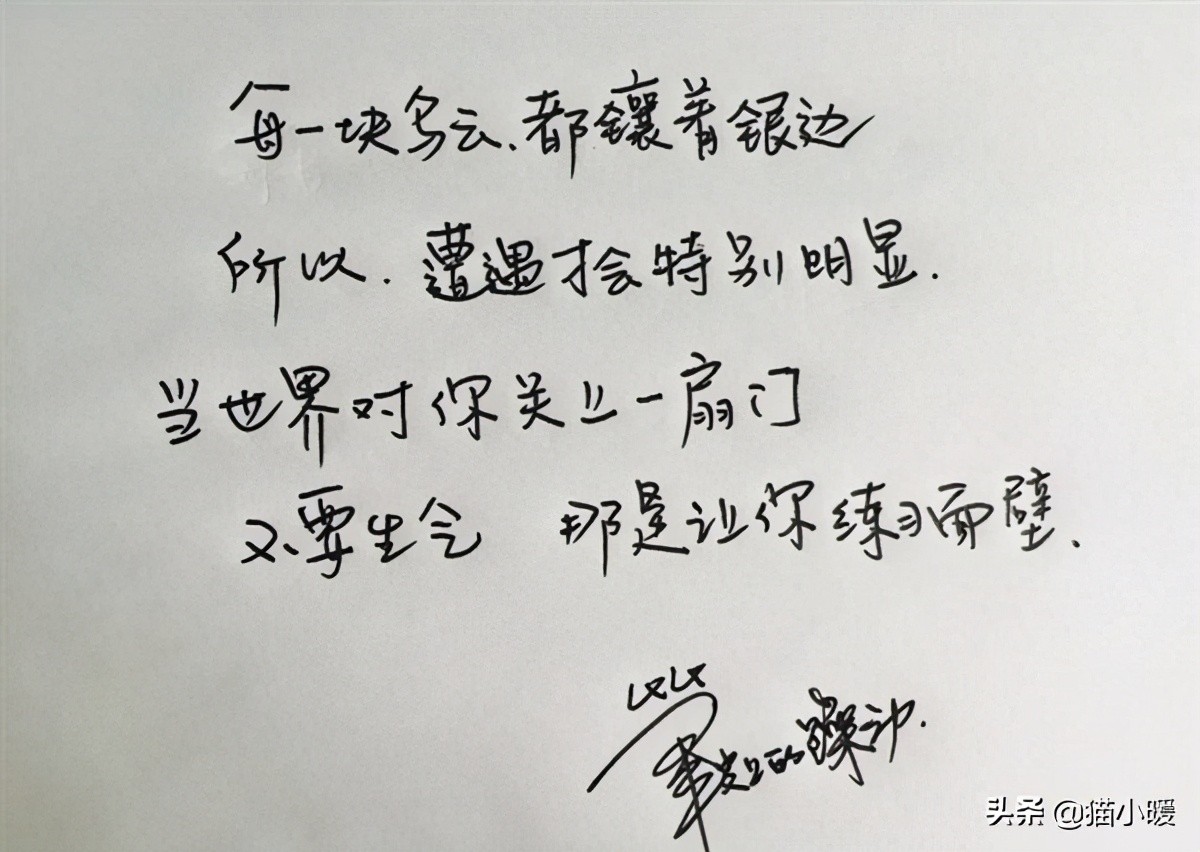 每一块乌云、都镶着银边
所以.遭遇才会特别明显.
当世界对你关上一扇门
不要生气 那是让你练习面壁.
笔尖上的躁动.
头条 @猫小暖